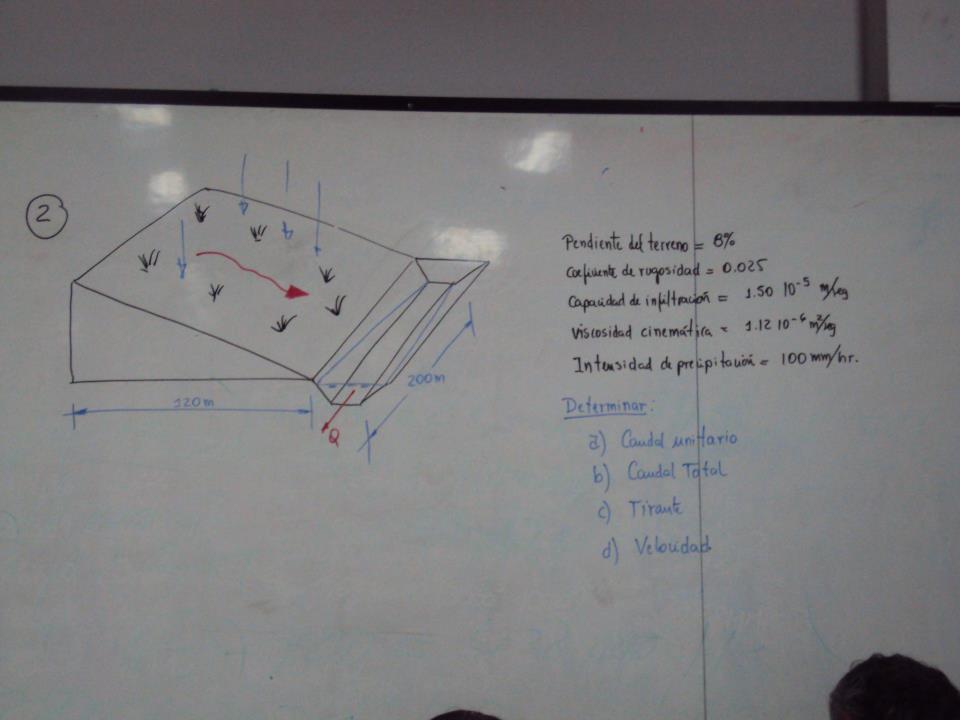 2
Pendiente del terreno = 8%
Coeficiente de rugosidad = 0.025
Capacidad de infiltración = 1.50 10⁻⁵ m/seg
Viscosidad cinemática = 1.12 10⁻⁶ m²/seg
Intensidad de precipitación = 100 mm/hr.
120 m
200 m
Q
Determinar:
a) Caudal unitario
b) Caudal Total
c) Tirante
d) Velocidad